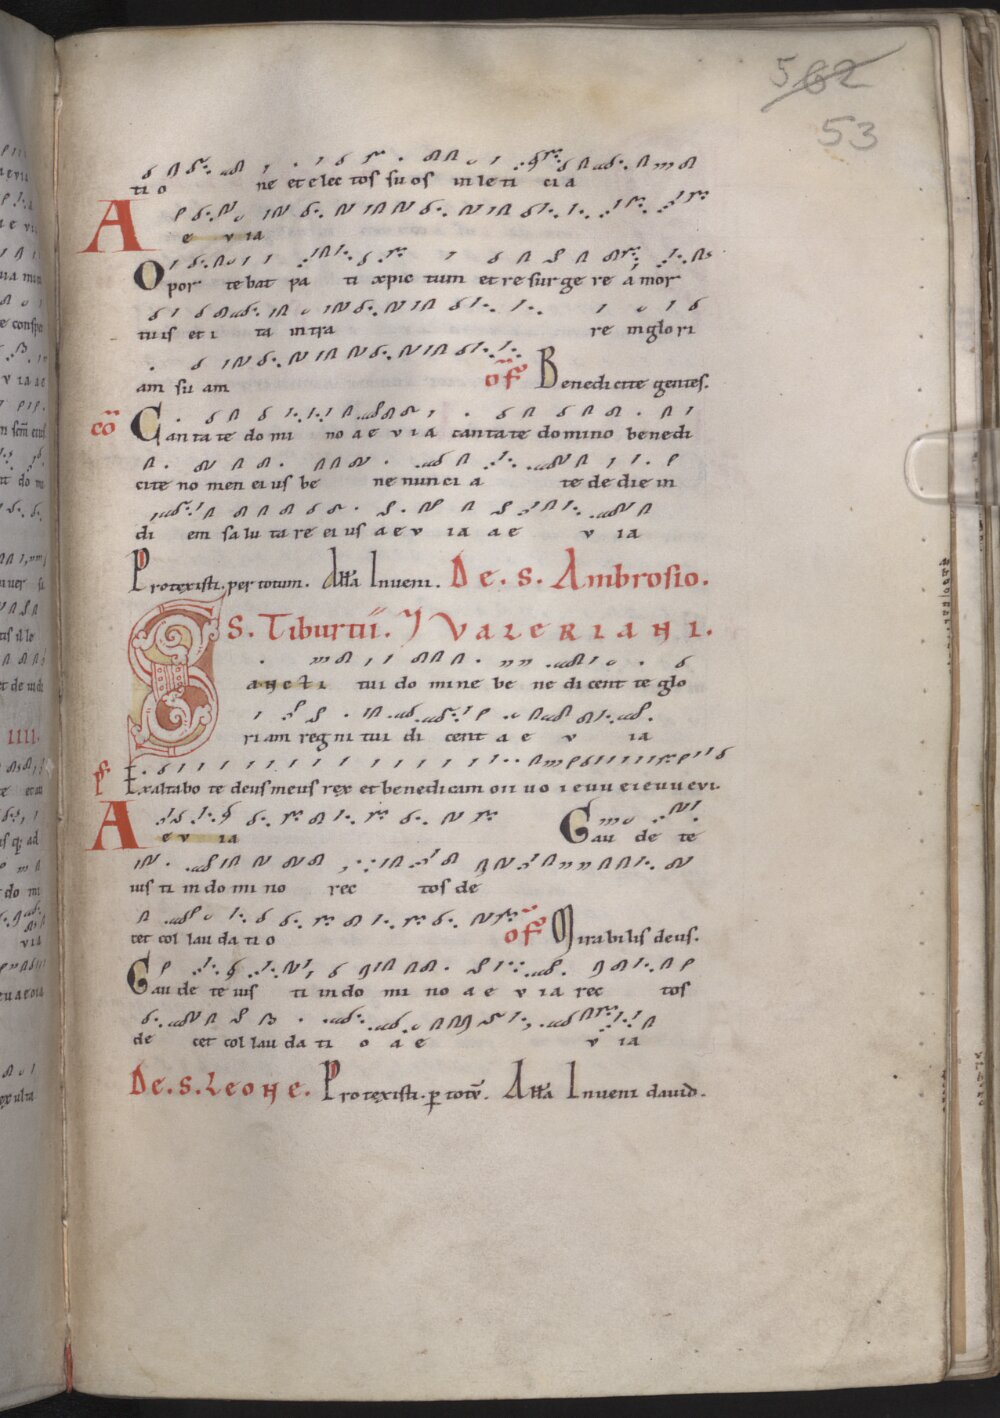 562
53
tio ne et elec tos su os in le ti ci a
A e v ia
Opor te bat pa ti xpic tum et re sur ge re á mor
tuis et i ta intra re in glo ri
am su am of Benedicite gentes.
cō Can ta te do mi no a e v i a can ta te do mi no be ne di
cite no men ei us be ne nun ci a te de die in
di em sa lu ta re ei us a e v ia a e v ia
Protexisti. per totum. Alla Inveni. De. S. Ambrosio.
S. Tiburtii. Valeriani.
Sancti tui do mi ne be ne di cent te glo
ri am reg ni tu i di cent a e v ia
ps Exaltabo te deus meus rex et benedicam
A e v ia Gau de te
ius ti in do mi no rec tos de
cet col lau da ti o of Mirabilis deus.
Gau de te ius ti in do mi no a e v ia rec tos
de cet col lau da ti o a e v ia
De. S. Leone. Protexisti. p totū. Alla Inveni david.